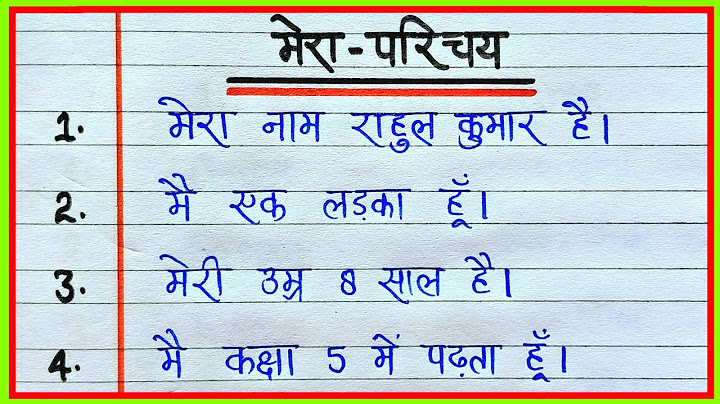 मेरा-परिचय
1. मेरा नाम राहुल कुमार है।
2. मै एक लड़का हूँ।
3. मेरी उम्र 8 साल है।
4. मै कक्षा 5 में पढ़ता हूँ।